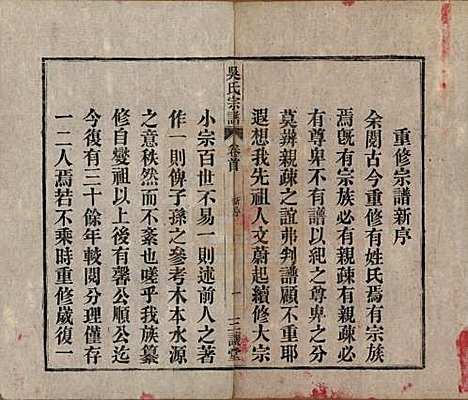 重修宗譜新序
余閱古今重修有姓氏焉有宗族
焉旣有宗族必有親疎有親疎必
有尊卑不有譜以紀之尊卑之分
莫辨親疎之誼弗判譜顧不重耶
遐想我先祖人文蔚起續修大宗
吳氏宗譜
卷首
新序
一
三讓堂
小宗百世不易一則述前人之著
作一則俾子孫之參考木本水源
之意秩然而不紊也嗟乎我族纂
修自燮祖以上後有馨公順公迄
今復有三十餘年較閱分理僅存
一二人焉若不乘時重修歲復一